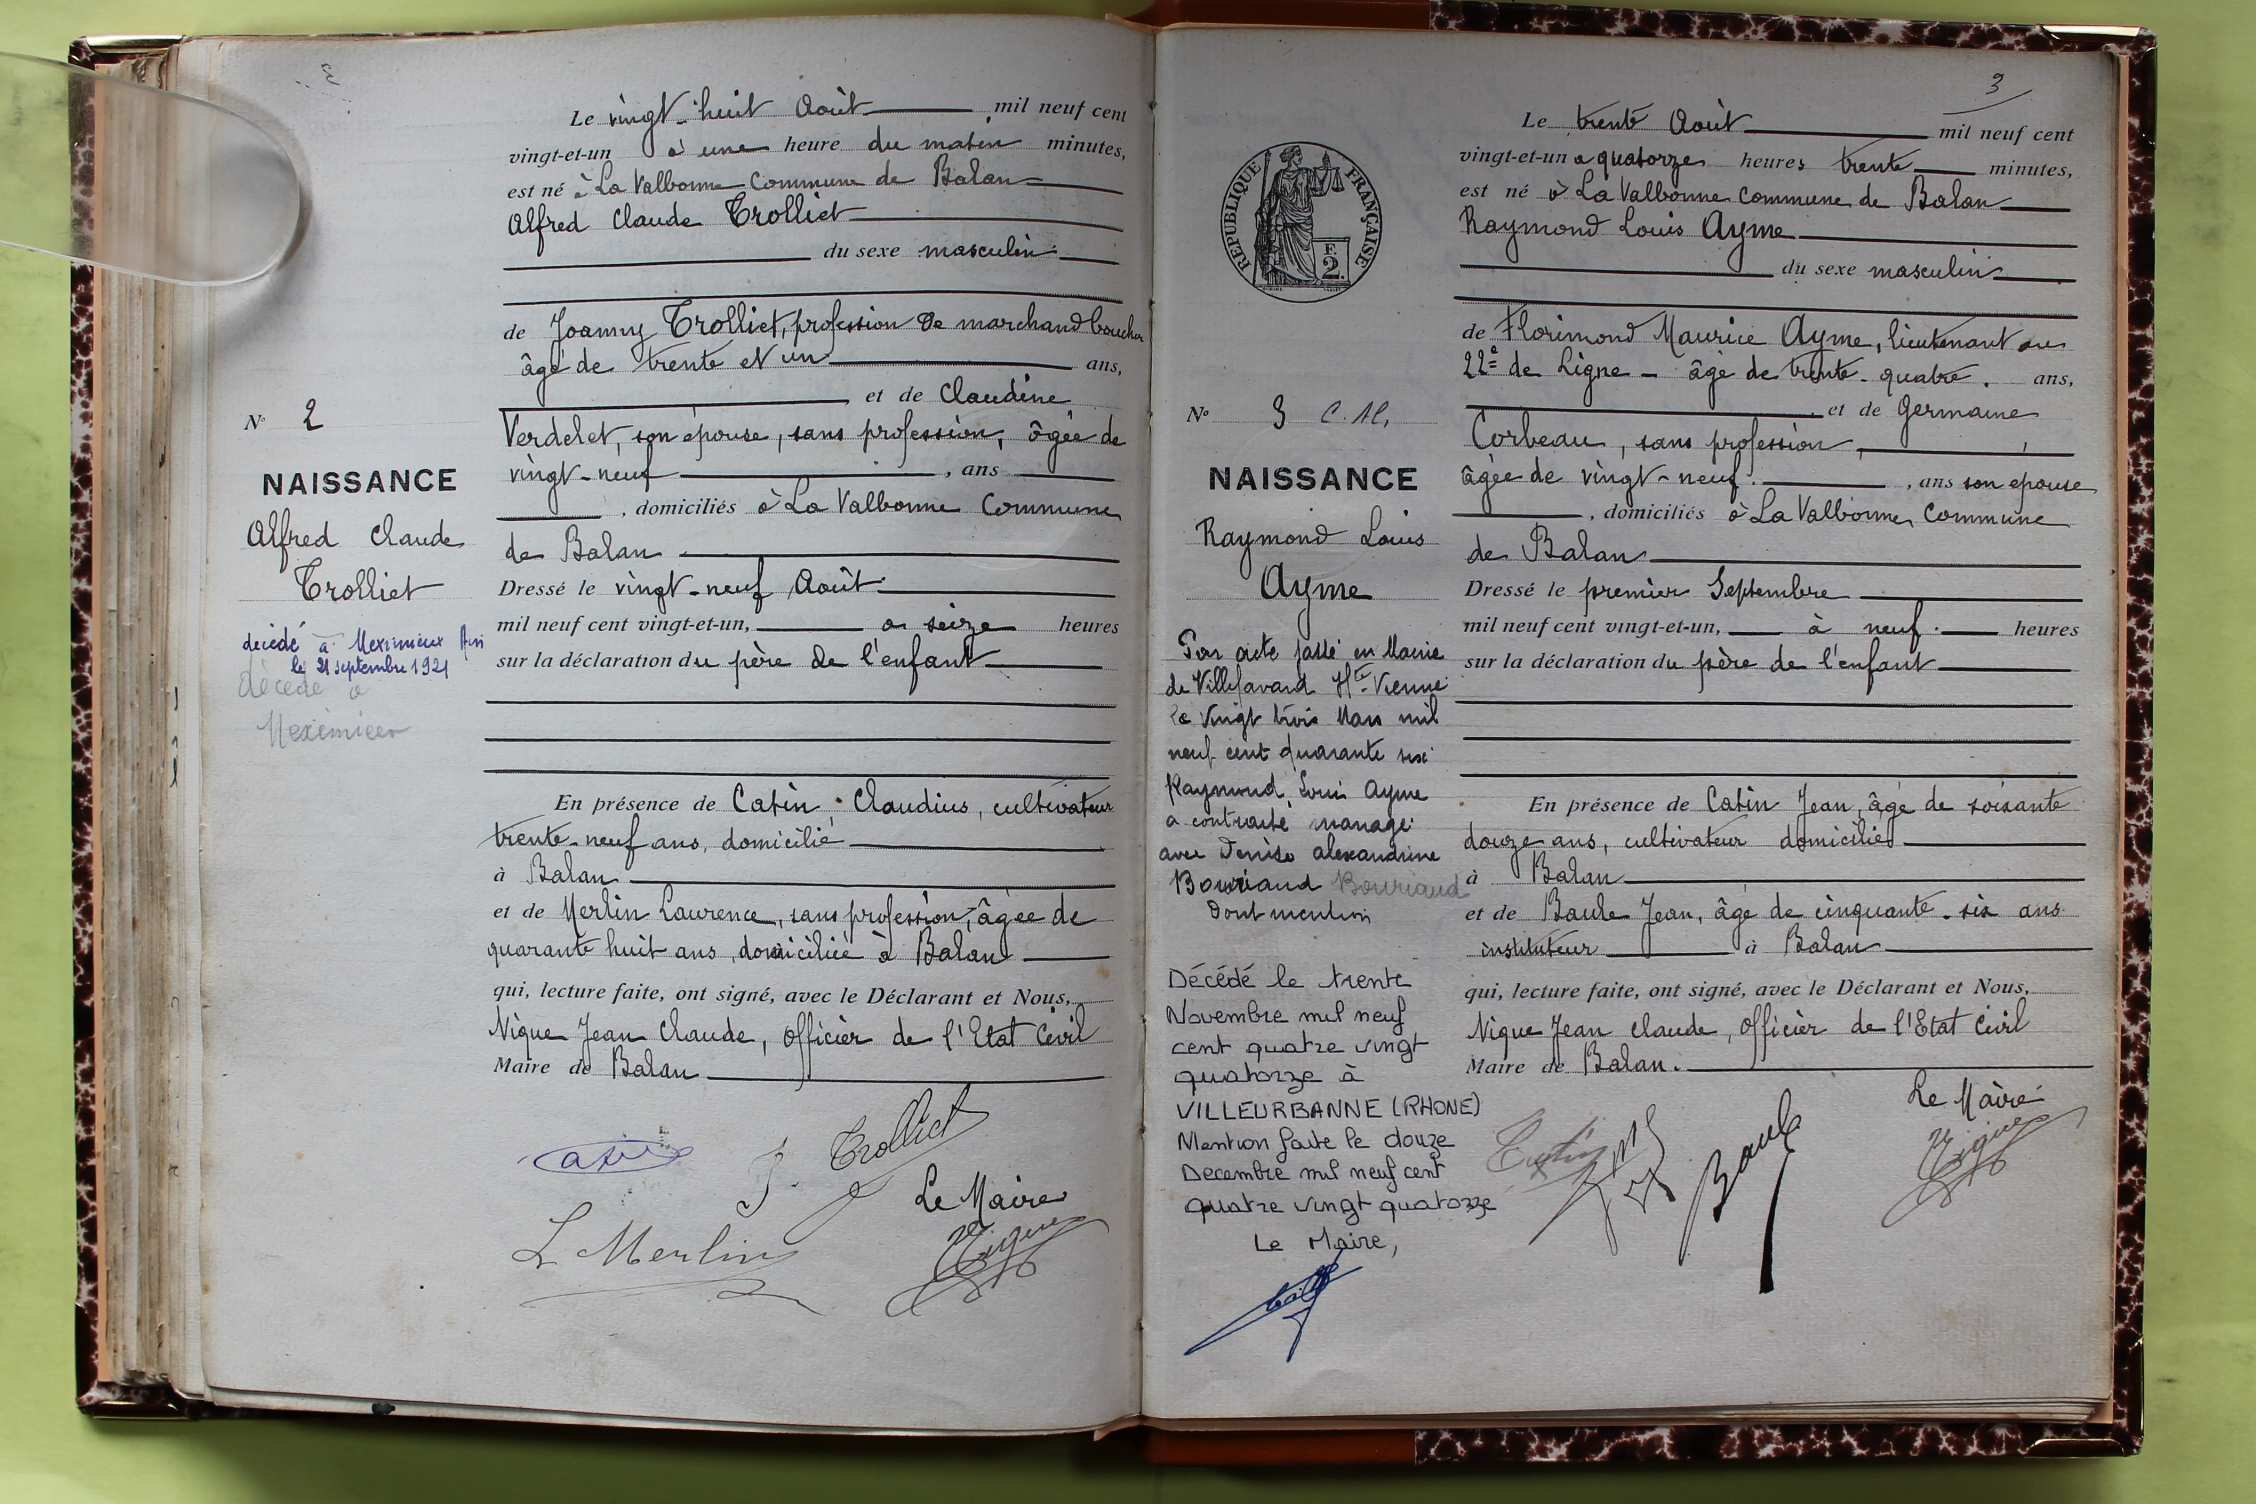 Le vingt-huit Août mil neuf cent
vingt-et-un à une heure du matin minutes,
est né à La Valbonne Commune de Balan
Alfred Claude Trolliet
du sexe masculin
de Joanny Trolliet, profession de marchand boucher
âgé de trente et un ans,
et de Claudine
Verdelet, son épouse, sans profession, âgée de
vingt-neuf, ans
, domiciliés à La Valbonne Commune
de Balan
Dressé le vingt-neuf Août
mil neuf cent vingt-et-un, à seize heures
sur la déclaration du père de l'enfant
En présence de Catin Claudius, cultivateur
trente-neuf ans, domicilié
à Balan
et de Merlin Laurence, sans profession, âgée de
quarante huit ans, domiciliée à Balan
qui, lecture faite, ont signé, avec le Déclarant et Nous,
Nique Jean Claude, Officier de l'Etat Civil
Maire de Balan
J. Trolliet
Le Maire
L Merlin
Nique
N° 2
NAISSANCE
Alfred Claude
Trolliet
décédé à Meximieux Ain
le 21 septembre 1921
décédé à
Meximieux
3
REPUBLIQUE FRANÇAISE
F.
2.
N° 3 C.M.
NAISSANCE
Raymond Louis
Ayme
Par acte passé en Mairie
de Villefavard Hte-Vienne
le vingt trois Mars mil
neuf cent quarante six
Raymond Louis Ayme
a contracté mariage
avec Denise Alexandrine
Bouriaud Bouriaud
Dont mention
Décédé le trente
Novembre mil neuf
cent quatre vingt
quatorze à
VILLEURBANNE (RHONE)
Mention faite le douze
Decembre mil neuf cent
quatre vingt quatorze
Le Maire,
Le trente Août mil neuf cent
vingt-et-un à quatorze heures trente minutes,
est né à La Valbonne Commune de Balan
Raymond Louis Ayme
du sexe masculin
de Florimond Maurice Ayme, lieutenant au
22e de Ligne - âgé de trente-quatre. ans,
et de Germaine
Corbeau, sans profession,
âgée de vingt-neuf, ans son épouse
, domiciliés à La Valbonne Commune
de Balan
Dressé le premier Septembre
mil neuf cent vingt-et-un, à neuf heures
sur la déclaration du père de l'enfant
En présence de Catin Jean, âgé de soixante
douze ans, cultivateur domiciliés
à Balan
et de Baule Jean, âgé de cinquante-six ans
instituteur à Balan
qui, lecture faite, ont signé, avec le Déclarant et Nous,
Nique Jean Claude, Officier de l'Etat Civil
Maire de Balan.
Le Maire
Baule
Nique